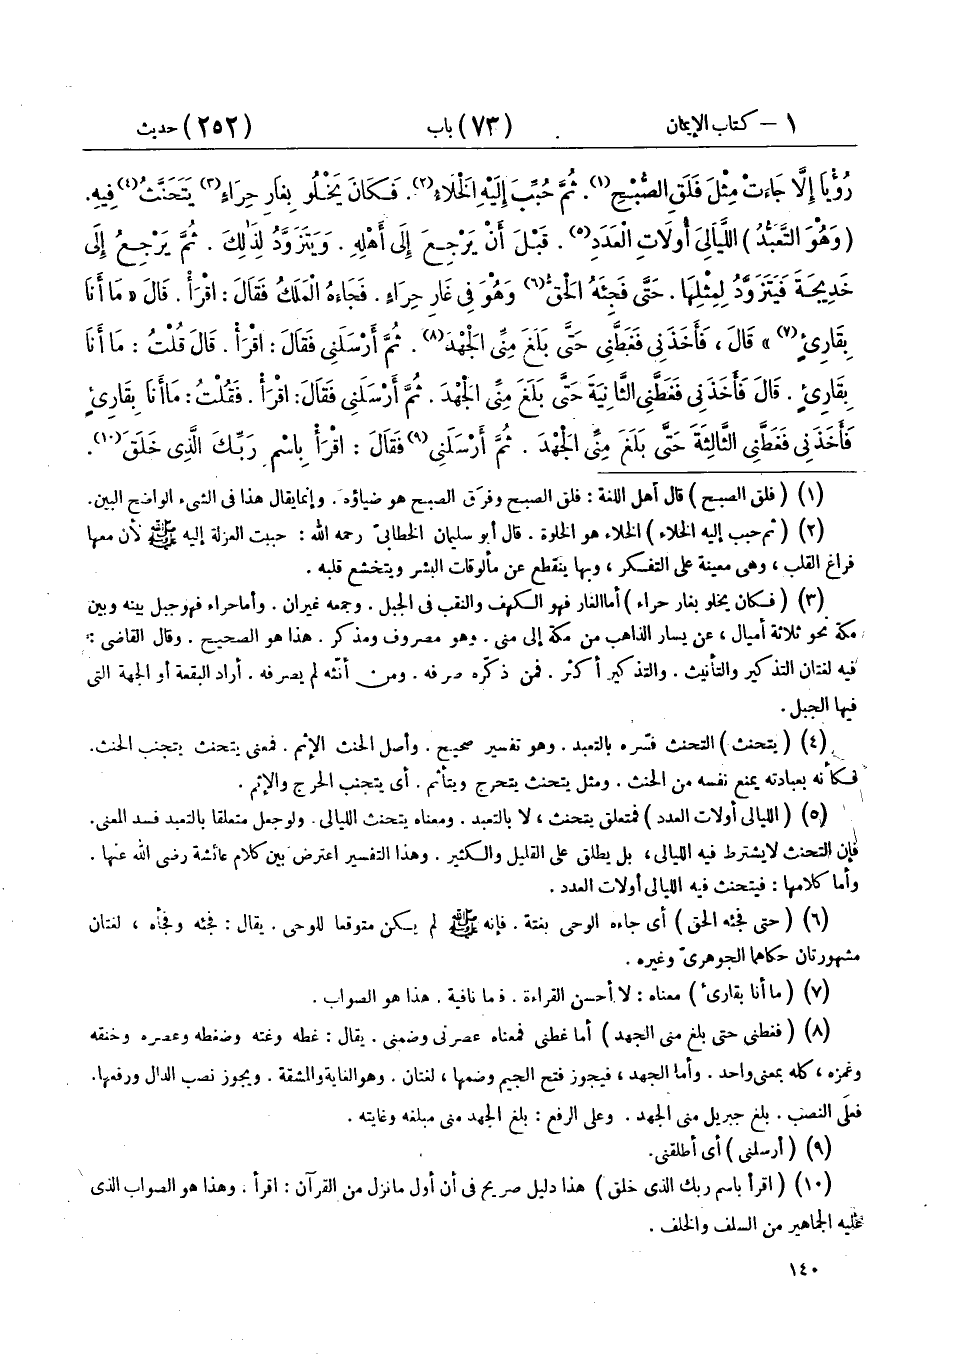 ١ – كتاب الإيمان (٧٣) باب (٢٥٢) حديث
رُؤْيَا إِلَّا جَاءَتْ مِثْلَ فَلَقِ الصُّبْحِ(١). ثُمَّ حُبِّبَ إِلَيْهِ الْخَلَاءُ(٢). فَكَانَ يَخْلُو بِغَارِ حِرَاءٍ(٣) يَتَحَنَّثُ(٤) فِيهِ.
(وَهُوَ التَّعَبُّدُ) اللَّيَالِيَ أُولَاتِ الْعَدَدِ(٥). قَبْلَ أَنْ يَرْجِعَ إِلَى أَهْلِهِ. وَيَتَزَوَّدُ لِذَلِكَ. ثُمَّ يَرْجِعُ إِلَى
خَدِيجَةَ فَيَتَزَوَّدُ لِمِثْلِهَا. حَتَّى فَجِئَهُ الْحَقُّ(٦) وَهُوَ فِي غَارِ حِرَاءٍ. فَجَاءَهُ الْمَلَكُ فَقَالَ: اقْرَأْ. قَالَ «مَا أَنَا
بِقَارِئٍ(٧)» قَالَ، فَأَخَذَنِي فَغَطَّنِي حَتَّى بَلَغَ مِنِّي الْجَهْدَ(٨). ثُمَّ أَرْسَلَنِي فَقَالَ: اقْرَأْ. قَالَ قُلْتُ: مَا أَنَا
بِقَارِئٍ. قَالَ فَأَخَذَنِي فَغَطَّنِي الثَّانِيَةَ حَتَّى بَلَغَ مِنِّي الْجَهْدَ. ثُمَّ أَرْسَلَنِي فَقَالَ: اقْرَأْ. فَقُلْتُ: مَا أَنَا بِقَارِئٍ
فَأَخَذَنِي فَغَطَّنِي الثَّالِثَةَ حَتَّى بَلَغَ مِنِّي الْجَهْدَ. ثُمَّ أَرْسَلَنِي(٩) فَقَالَ: اقْرَأْ بِاسْمِ رَبِّكَ الَّذِي خَلَقَ(١٠).
(١) (فلق الصبح) قال أهل اللغة: فلق الصبح وفرق الصبح هو ضياؤه. وإنما يقال هذا فى الشىء الواضح البين.
(٢) (ثم حبب إليه الخلاء) الخلاء هو الخلوة. قال أبو سليمان الخطابىّ رحمه الله: حببت العزلة إليه ﷺ لأن معها
فراغ القلب، وهى معينة على التفكر، وبها ينقطع عن مألوفات البشر ويتخشع قلبه.
(٣) (فكان يخلو بغار حراء) أما الغار فهو الكهف والنقب فى الجبل. وجمعه غيران. وأما حراء فهو جبل بينه وبين
مكة نحو ثلاثة أميال، عن يسار الذاهب من مكة إلى منى. وهو مصروف ومذكر. هذا هو الصحيح. وقال القاضى:
فيه لغتان التذكير والتأنيث. والتذكير أكثر. فمن ذكّره صرفه. ومن أنّثه لم يصرفه. أراد البقعة أو الجهة التى
فيها الجبل.
(٤) (يتحنث) التحنث فسّره بالتعبد. وهو تفسير صحيح. وأصل الحنث الإثم. فمعنى يتحنث يتجنب الحنث.
فكأنه بعبادته يمنع نفسه من الحنث. ومثل يتحنث يتحرج ويتأثم. أى يتجنب الحرج والإثم.
(٥) (الليالى أولات العدد) فمتعلق يتحنث، لا بالتعبد. ومعناه يتحنث الليالى. ولو جعل متعلقا بالتعبد فسد المعنى.
فإن التحنث لا يشترط فيه الليالى، بل يطلق على القليل والكثير. وهذا التفسير اعترض بين كلام عائشة رضى الله عنها.
وأما كلامها: فيتحنث فيه الليالى أولات العدد.
(٦) (حتى فجئه الحق) أى جاءه الوحى بغتة. فإنه ﷺ لم يكن متوقعا للوحى. يقال: فجئه وفجأه، لغتان
مشهورتان حكاهما الجوهرىّ وغيره.
(٧) (ما أنا بقارئ) معناه: لا أحسن القراءة. فما نافية. هذا هو الصواب.
(٨) (فغطنى حتى بلغ منى الجهد) أما غطنى فمعناه عصرنى وضمنى. يقال: غطه وغته وضغطه وعصره وخنقه
وغمزه، كله بمعنى واحد. وأما الجهد، فيجوز فتح الجيم وضمها، لغتان. وهو الغاية والمشقة. ويجوز نصب الدال ورفعها.
فعلى النصب. بلغ جبريل منى الجهد. وعلى الرفع: بلغ الجهد منى مبلغه وغايته.
(٩) (أرسلنى) أى أطلقنى.
(١٠) (اقرأ باسم ربك الذى خلق) هذا دليل صريح فى أن أول ما نزل من القرآن: اقرأ. وهذا هو الصواب الذى
عليه الجماهير من السلف والخلف.
١٤٠